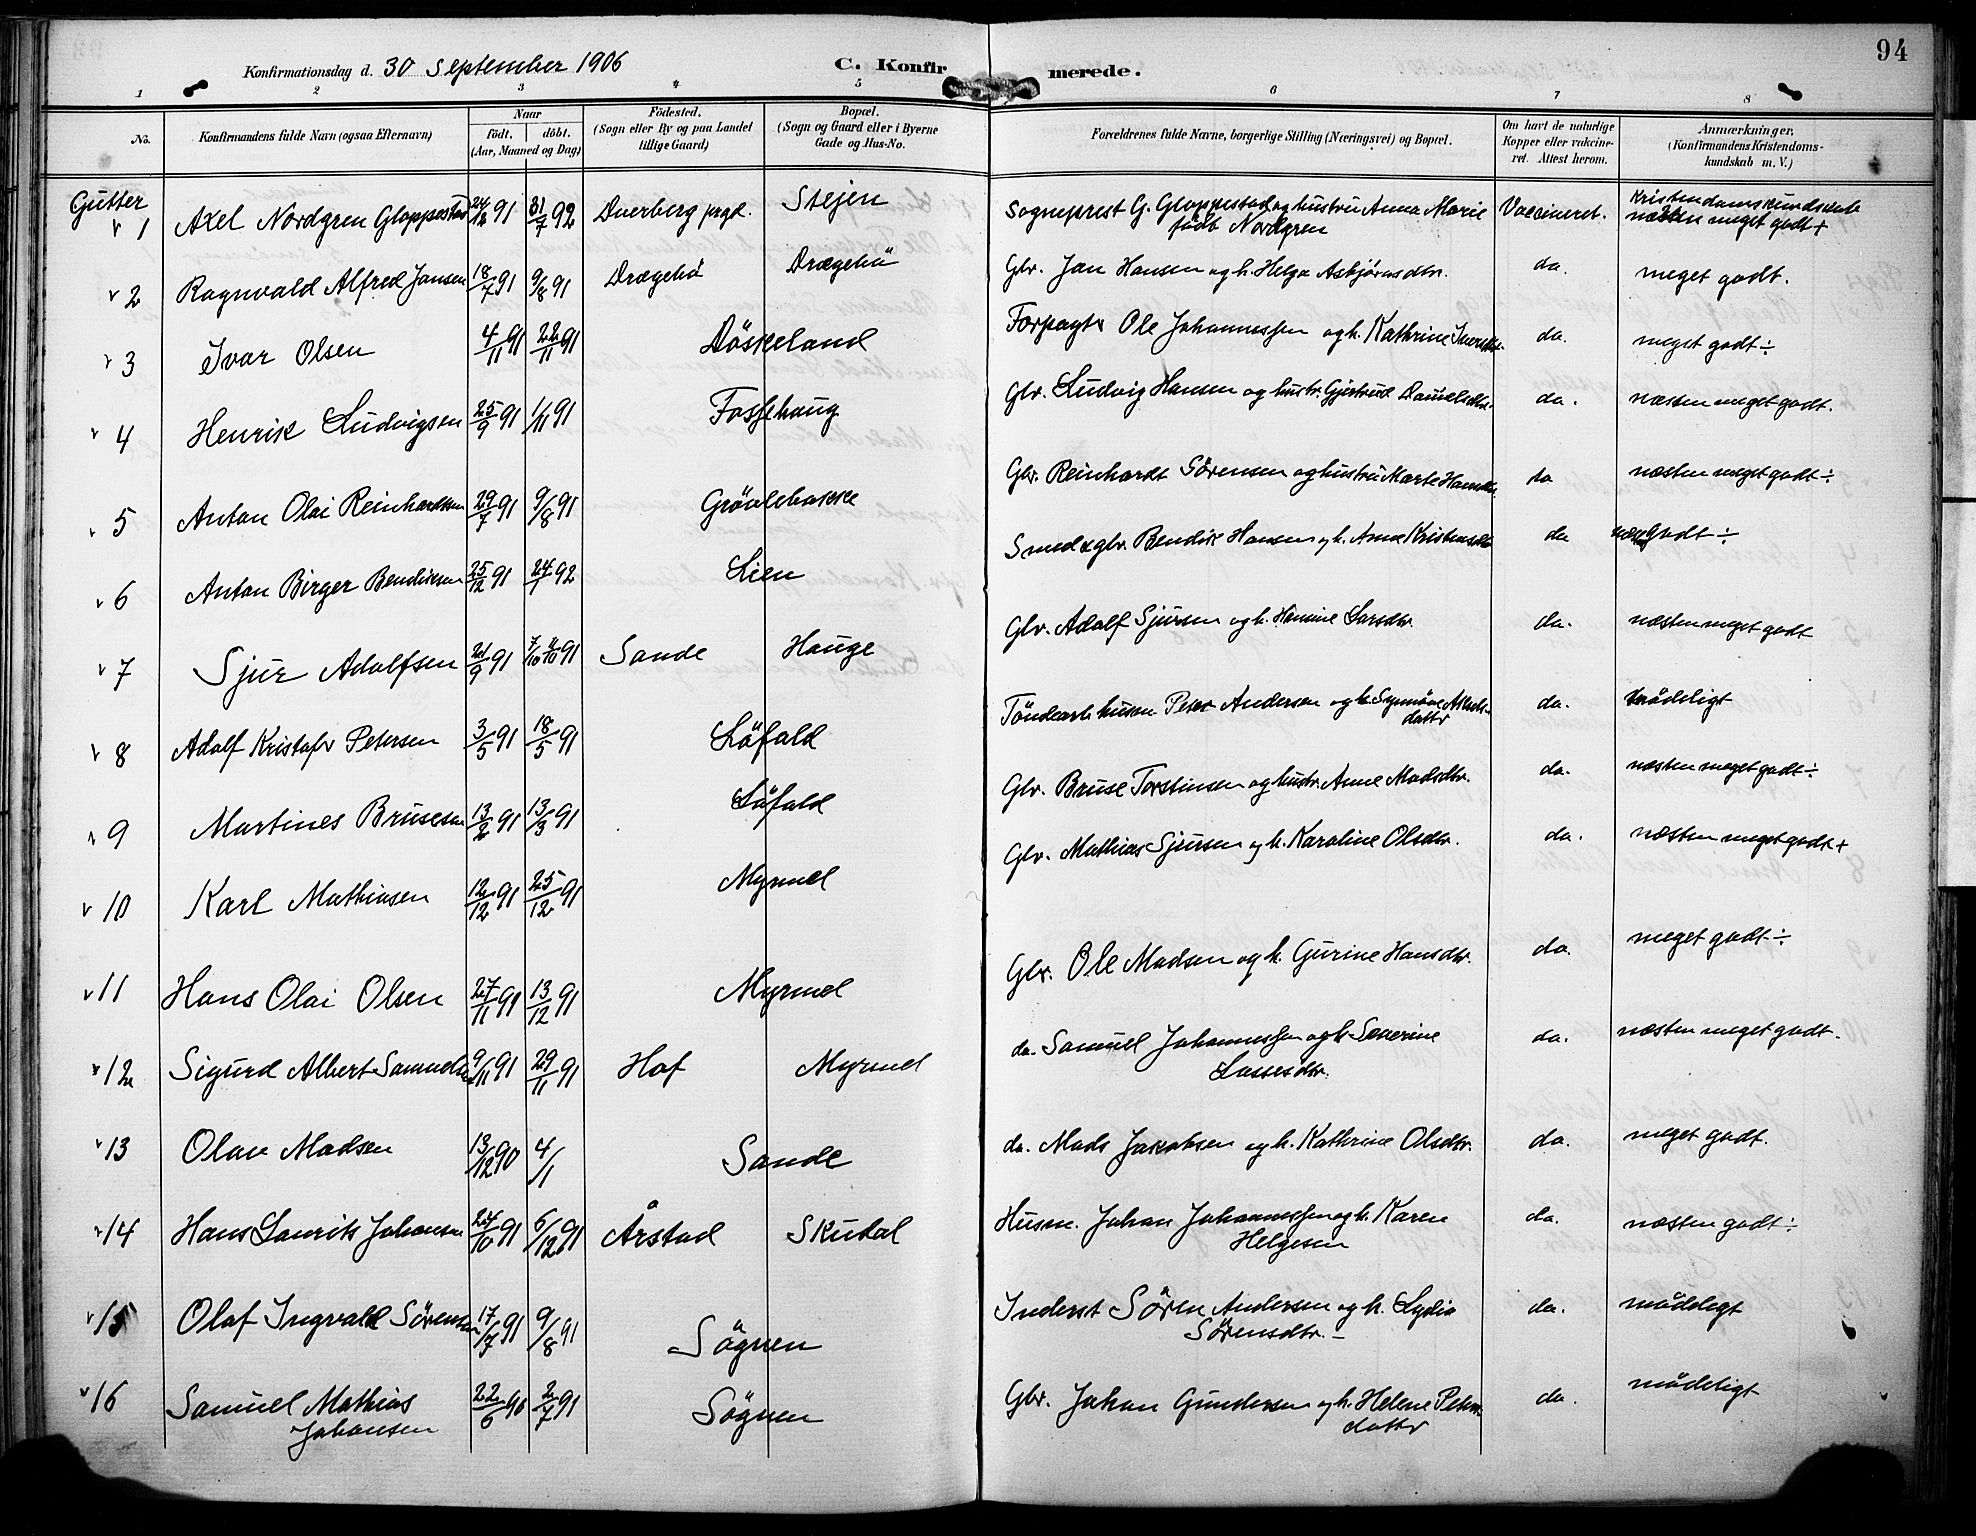 94
Konfirmationsdag d. 30 September 1906
C. Konfirmerede.
1 2 3 4 5 6 7 8
No.
Konfirmandens fulde Navn (ogsaa Efternavn)
Naar
födt. döbt.
(Aar, Maaned og Dag)
Födested.
(Sogn eller By og paa Landet
tillige Gaard)
Bopæl.
(Sogn og Gaard eller i Byerne
Gade og Hus-No.
Forældrenes fulde Navne, borgerlige Stilling (Næringsvei) og Bopæl.
Om havt de naturlige
Kopper eller vaccine-
ret. Attest herom.
Anmærkninger.
(Konfirmandens Kristendoms-
kundskab m. V.)
Gutter
1 Axel Nordgren Gloppestad 24/12 91 31/7 92 Duerberg prgd. Stejen Sogneprest G. Gloppestad og hustru Anna Marie Vaccineret. Kristendomskundskab
födt Nordgren næsten meget godt +
2 Ragnvald Alfred Jansen 18/7 91 9/8 91 Drægebö Drægebö Gbr. Jan Hansen og h. Helga Asbjörnsdtr. da. meget godt.
3 Ivar Olsen 4/11 91 22/11 91 Döskeland Forpagtr Ole Johannessen og h. Kathrine da. meget godt ÷
4 Henrik Ludvigsen 25/9 91 1/11 91 Fossehaug Gbr. Ludvig Hansen og hustr. Gjertrud Danielsdtr. da. næsten meget godt.
5 Anton Olai Reinhardtsen 29/7 91 9/8 91 Grövlebakke Gbr. Reinhardt Sörensen og hustru Marte da næsten meget godt ÷
6 Anton Birger Bendiksen 25/12 91 24/1 92 Lien Smed & gbr. Bendik Hansen og h. Anne Kristensdtr da godt ÷
7 Sjur Adolfsen 21/9 91 91 Sande Hauge Gbr. Adolf Sjursen og h. Hansine Larsdtr. da. næsten meget godt
8 Adolf Kristofer Petersen 3/5 91 18/5 91 Löfald Peter Andersen og h. Synnöve da. mådeligt
dattr
9 Martines Brusesen 13/2 91 13/3 91 Löfald Gbr. Bruse Torstinsen og hustr. Anne Madsdtr. da. næsten meget godt ÷
10 Karl Mathiasen 12/12 91 25/12 91 Myrmel Gbr. Mathias Sjursen og h. Karoline Olsdtr. da. næsten meget godt +
11 Hans Olai Olsen 27/11 91 13/12 91 Myrmel Gbr. Ole Madsen og h. Gurine Hansdtr. da. meget godt ÷
12 Sigurd Albert Samuelsen 9/11 91 29/11 91 Hof Myrmel da. Samuel Johannessen og h. Severine da. næsten meget godt.
Lassesdtr.
13 Olav Madsen 13/12 90 4/1 Sande da. Mads Jakobsen og h. Kathrine Olsdtr. da. meget godt.
14 Hans Laurits Johansen 24/10 91 6/12 91 Årstad Skudal Husm. Johan Johannessen og h. Karen da. næsten godt ÷
Helgesen
15 Olaf Ingvald Sörensen 17/7 91 9/8 91 Sögnen Inderst Sören Andersen og h. Lydia da. mådeligt
Sörensdtr. –
16 Samuel Mathias 22/6 90 2/7 91 Sögnen Gbr. Johan Gundersen og h. Helene Peters- da. mådeligt
Johansen dattr